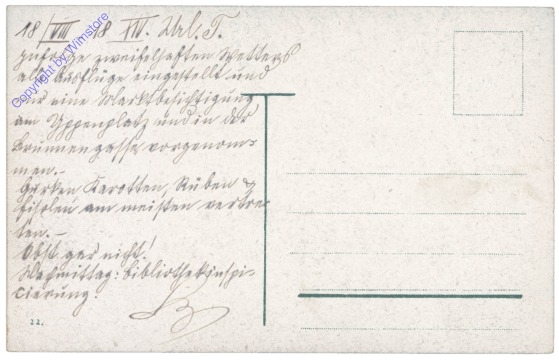 18/VIII 18 XIV. Url. T.
zufolge zweifelhaften Wetters
alle Ausflüge eingestellt und
nur eine Marktbesichtigung
am Yppenplatz und in der
Brunnengasse vorgenom-
men.-
Gurken Karotten, Rüben &
Fisolen am meisten vertre-
ten.-
Obst gar nicht!
Nachmittag: Bibliotheksinspi-
cierung!
22.
Copyright by Wimstore